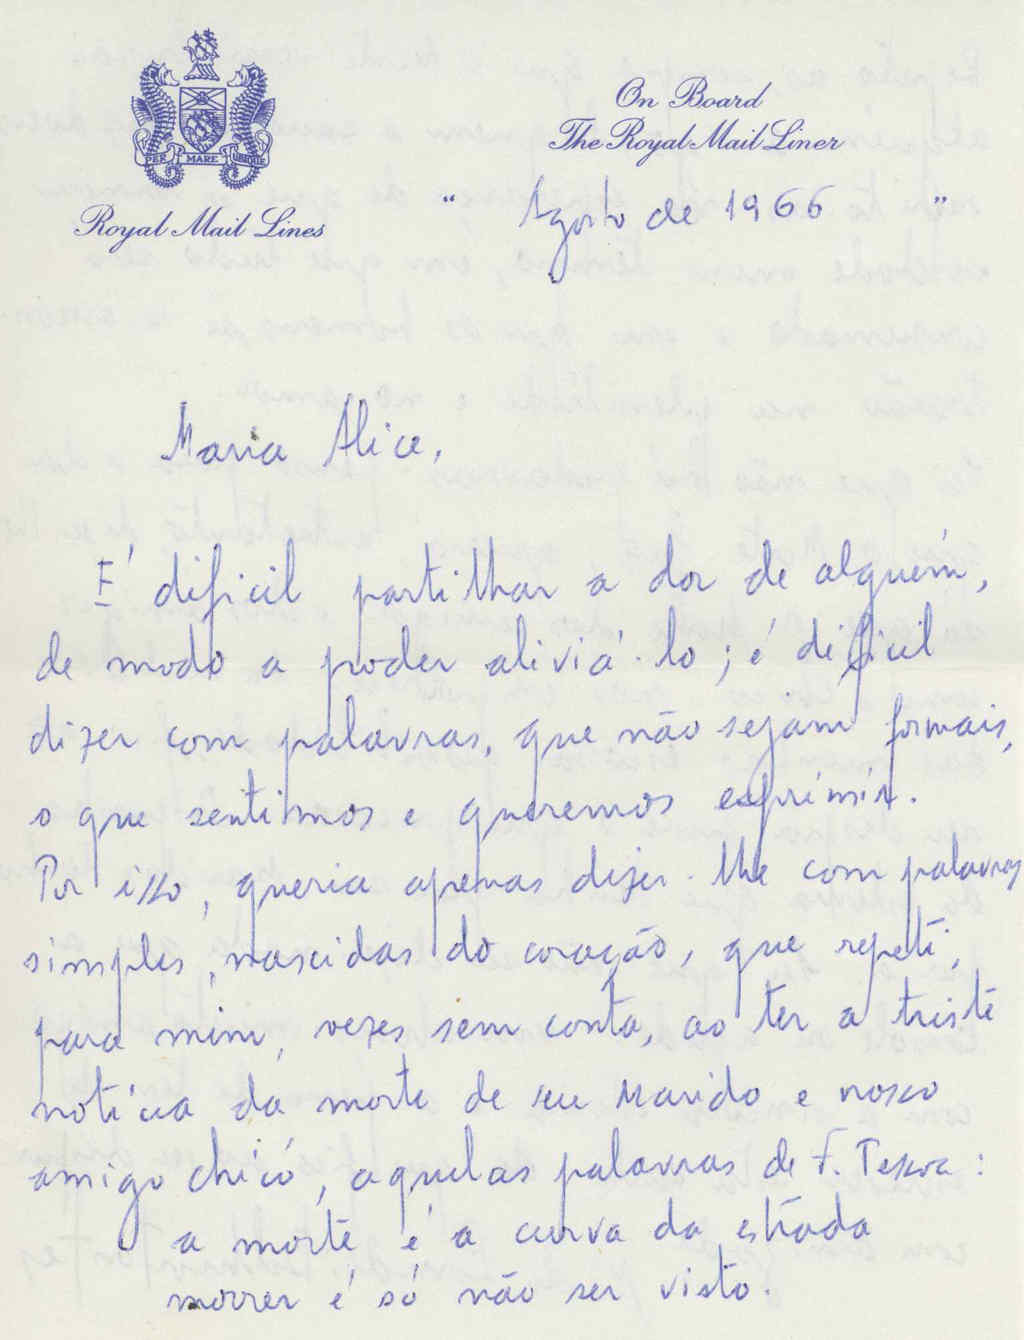 PER MARE UBIQUE
Royal Mail Lines
On Board
The Royal Mail Liner
" Agosto de 1966 "
Maria Alice,
É dificil partilhar a dor de alguém,
de modo a poder aliviá-lo; é dificil
dizer com palavras, que não sejam formais,
o que sentimos e queremos exprimir.
Por isso, queria apenas dizer-lhe com palavras
simples, nascidas do coração, que repeti,
para mim, vezes sem conta, ao ter a triste
notícia da morte de seu Marido e nosso
amigo Chicó, aquelas palavras de F. Pessoa:
a morte é a curva da estrada
morrer é só não ser visto.